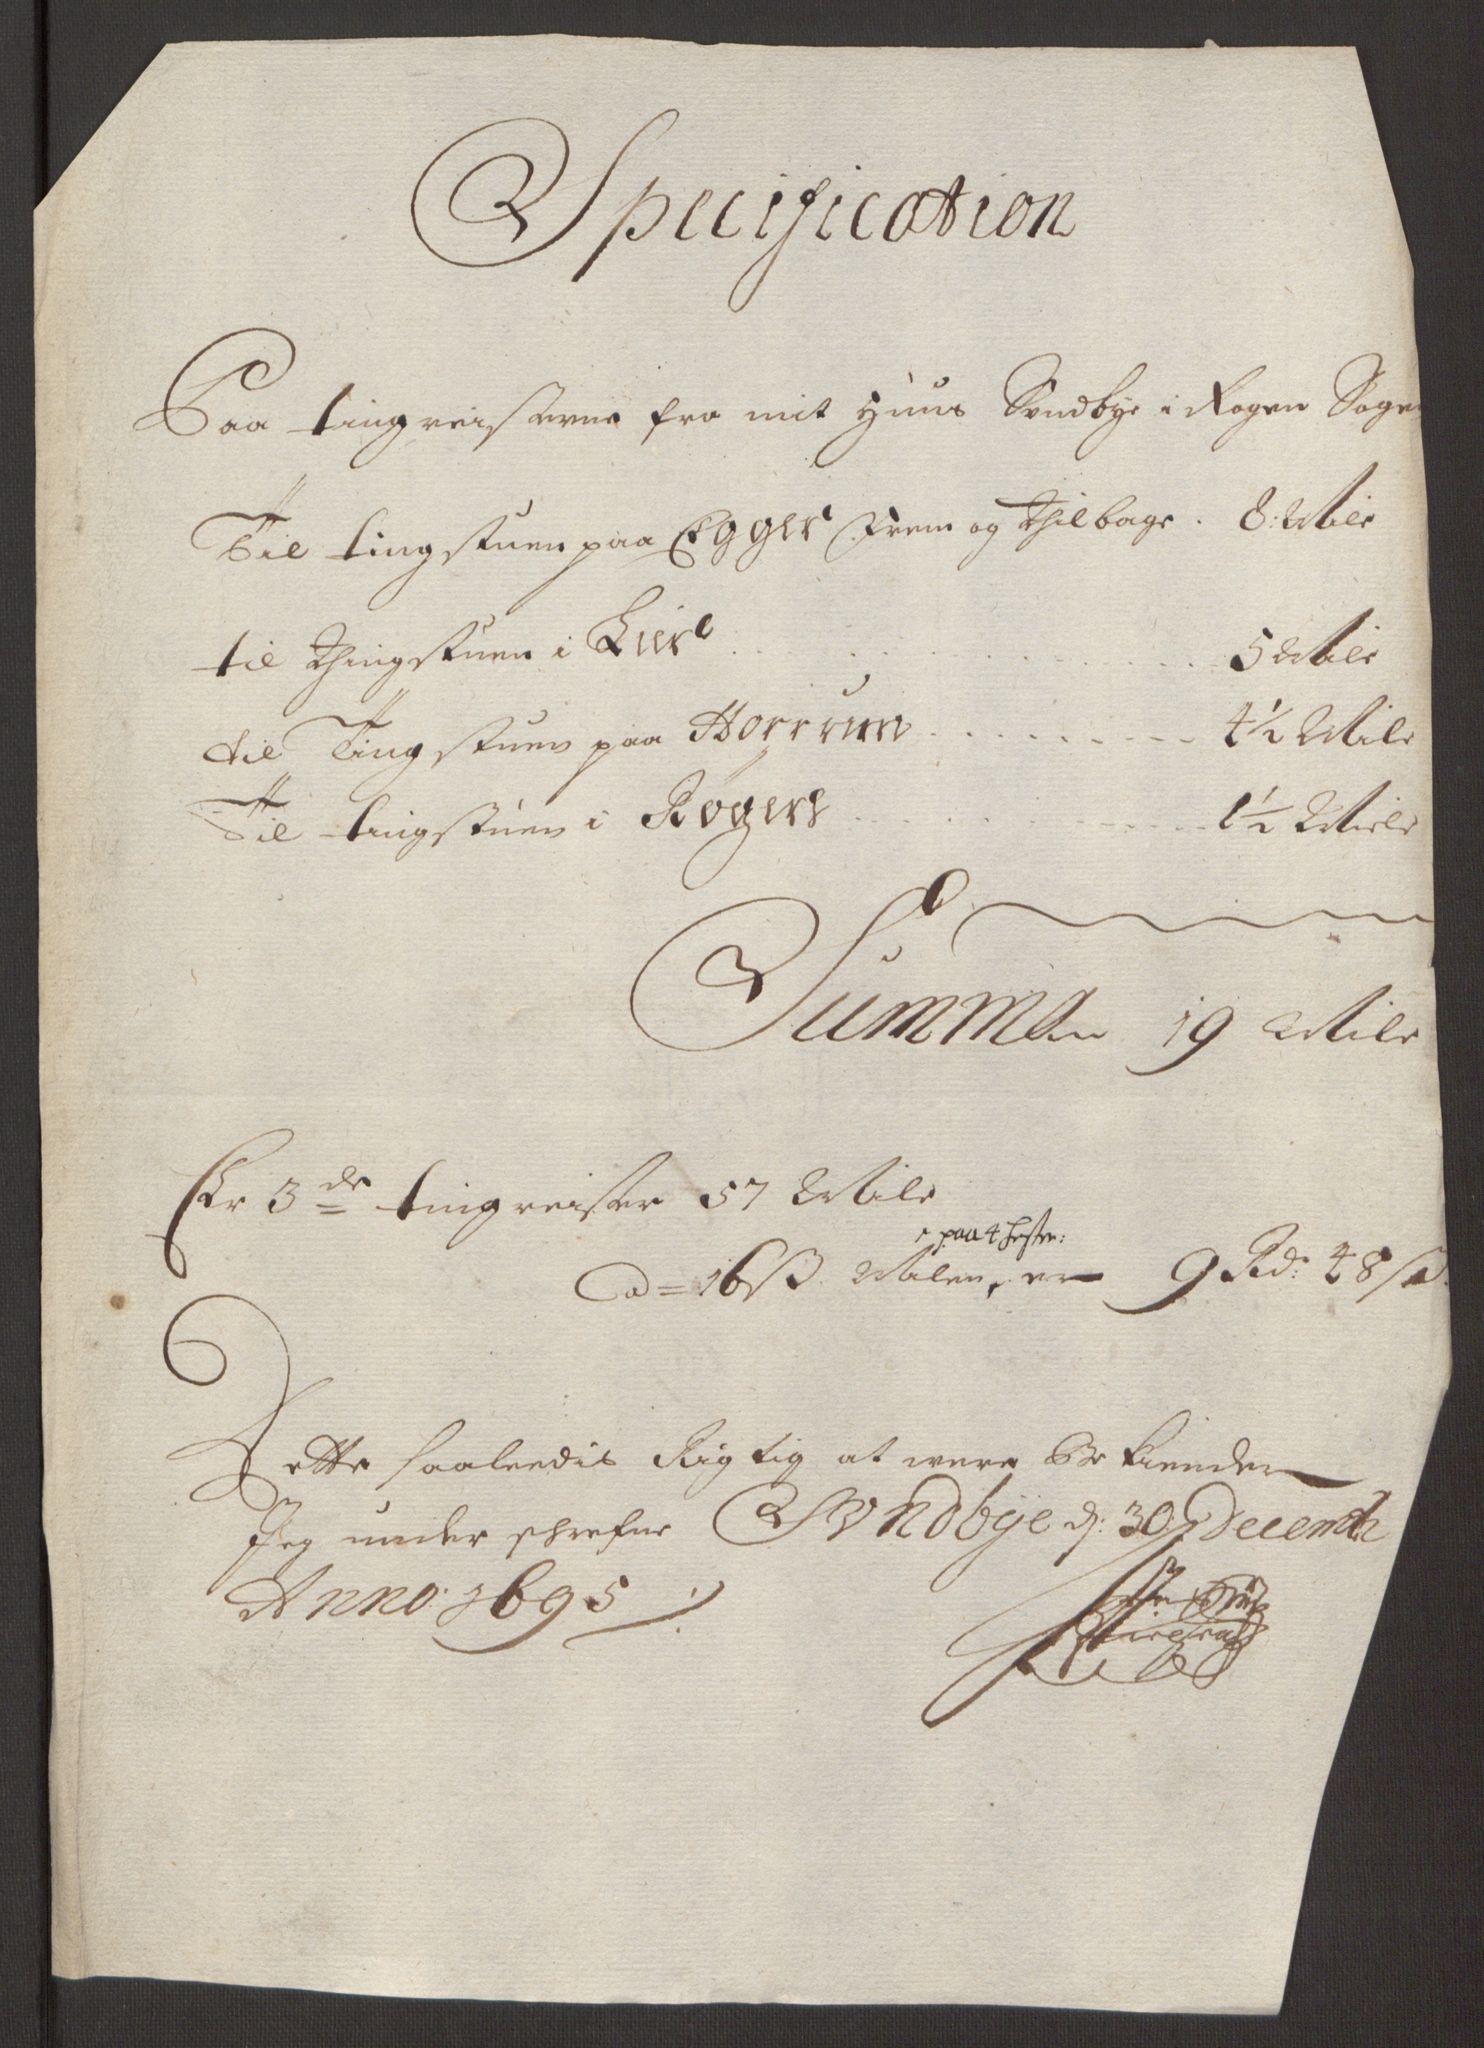 Specification
Paa tingreiserne fra mit Huus Svndbye i Røgen Sogen
Til tingstuen paa Egger Frem og Thilbage . 8: Mile
til Thingstuen i Liere . . . . . . . . 5 Mile
til Tingstuen paa Horrum . . . . . . 4½ Mile
Til tingstuen i Røgen . . . . . . . 1½ Mile
Summa 19 Mile
Er 3de tingreiser 57 Mile
paa 4 hester:
a = 16 ß Milen, er 9 Rd: 48 ß
Dette saaleedis Rigtig at were Bekiender
Jeg under schrefne Svndbye d: 30 Decemb
Anno 1695